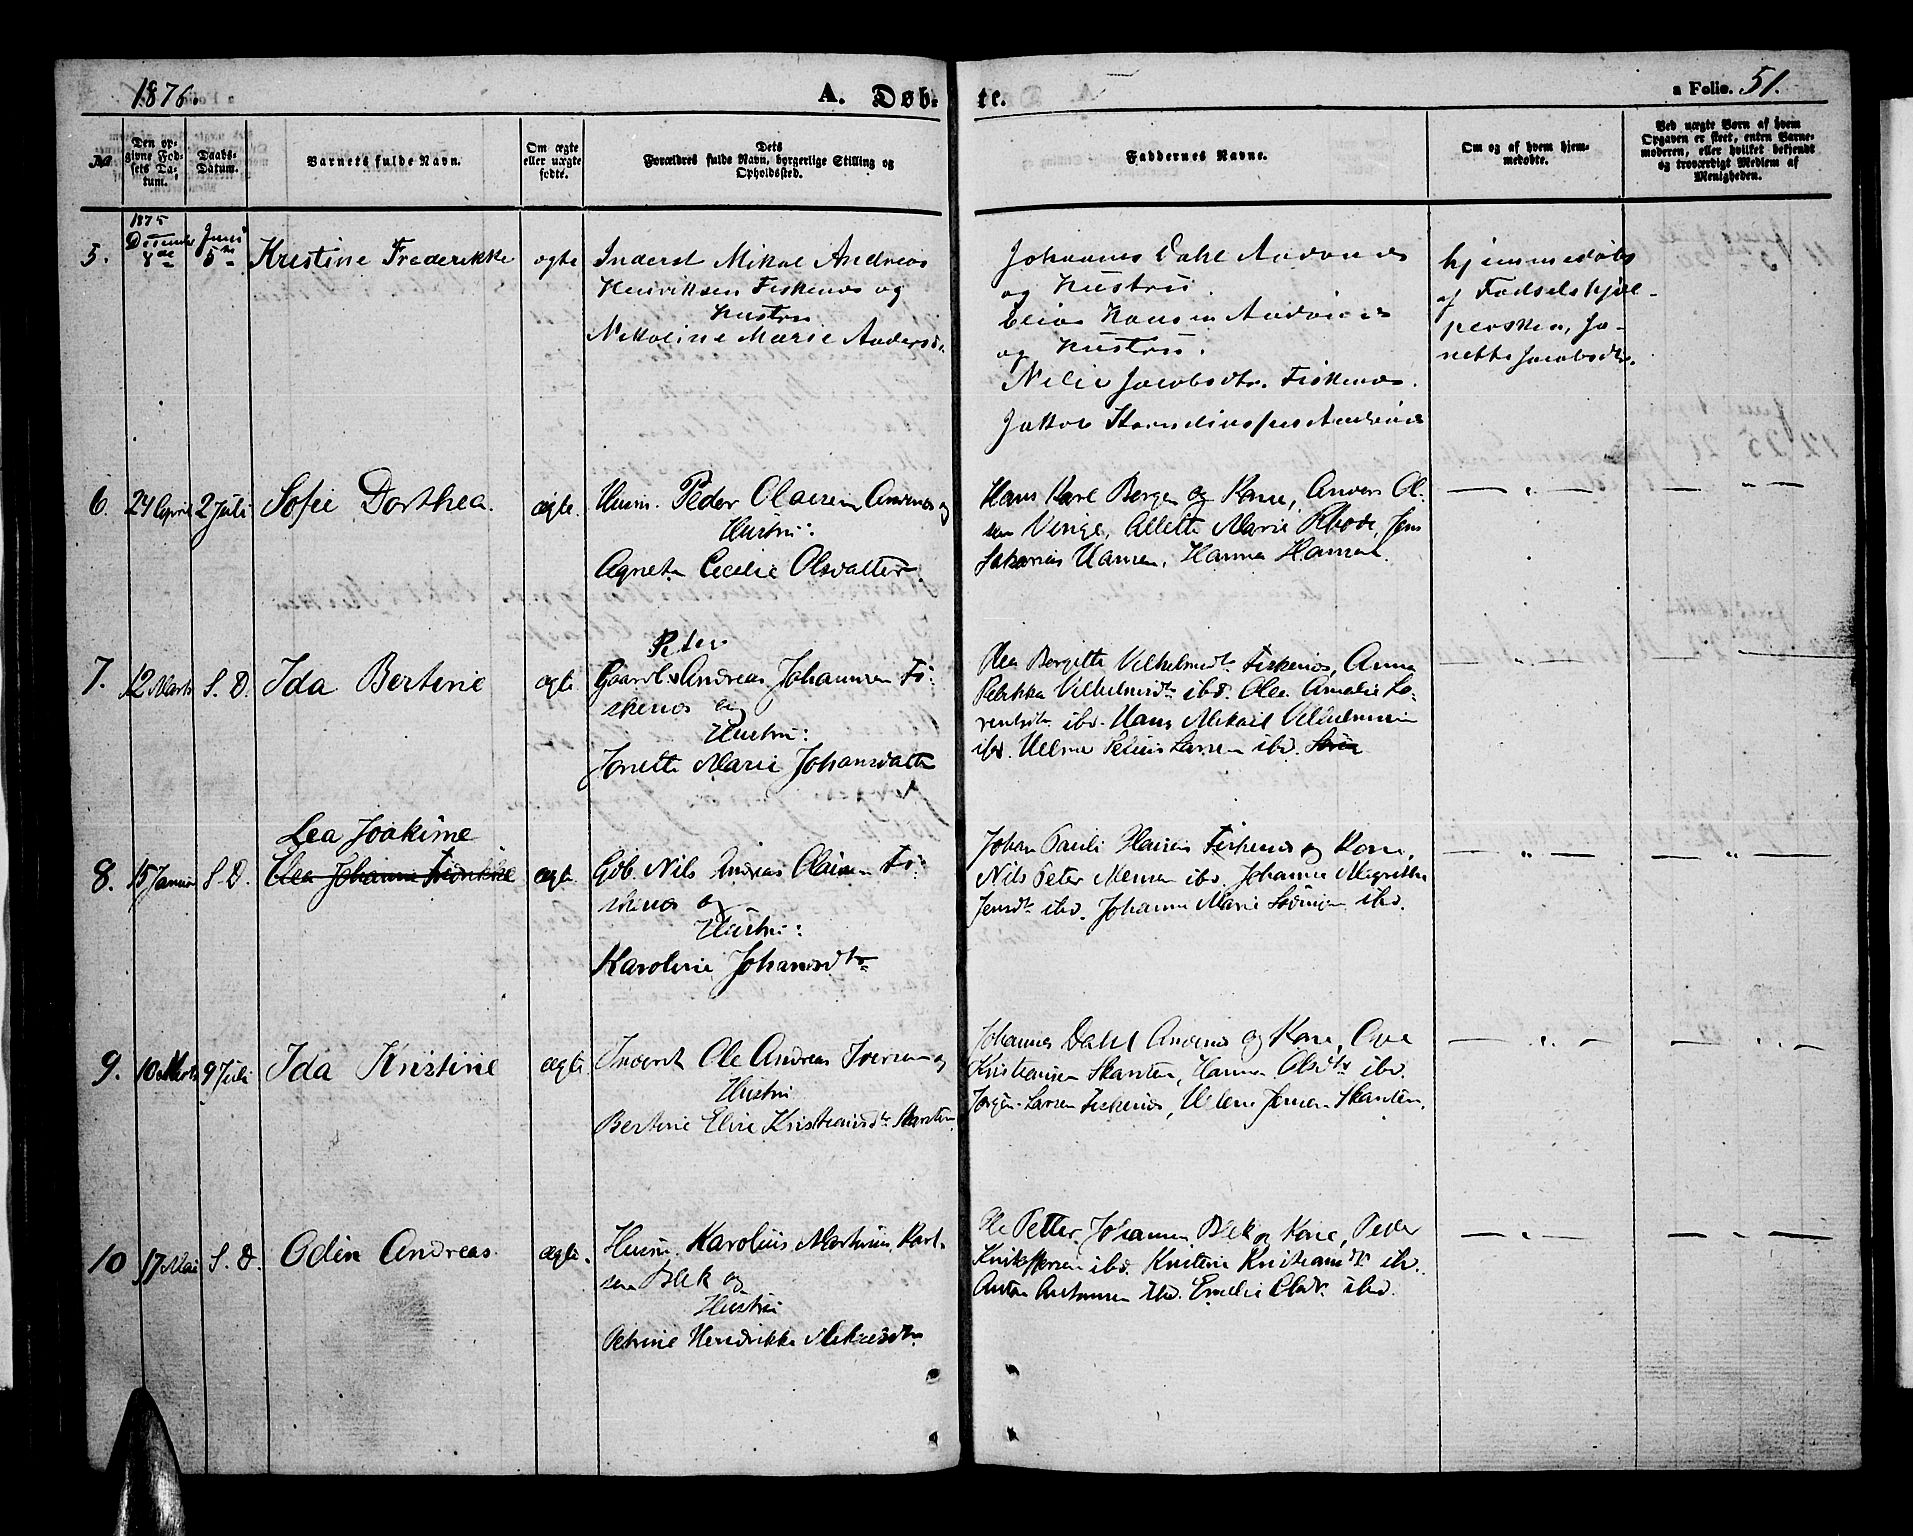 1876.
A. Døb-
te.
a Folio. 51.
No.
Den op-
givne Fød-
sels Da-
tum.
Daabs-
Datum.
Barnets fulde Navn.
Om ægte
eller uægte
fødte.
Dets
Forældres fulde Navn, borgerlige Stilling og
Opholdssted.
Faddernes Navne.
Om og af hvem hjem-
medøbte.
Ved uægte Børn af hvem
Opgaven er skeet, enten Barne-
moderen, eller hvilket bekjendt
og troværdigt Medlem af
Menigheden.
5.
1875
December
8de
Juni
5te
Kristine Frederikke
ægte
Inderst Mikal Andreas
Henriksen Fiskenæs og
Hustru
Nikoline Marie Andersd.
Johannes Dahl Andenæs
og Hustru.
Elias Hansen
og Hustru.
Jacobsdtr. Fiskenæs.
Jakob
hjemmedøbt
af Fødselshjæl-
persken, Ja-
nette Jacobsdtr.
6.
24 April
2 Juli
Sofie Dorthea.
ægte.
Husm. Peder Olaisen Andenæs og
Hustru:
Agnete Cecilie Olsdatter.
Hans Karl Bergen og Kone, Anders Ol-
sen Veiige, Allette Marie Rhode, Jens
Sakarias Hansen, Hanna Hansen.
7.
12 Marts
S. D.
Ida Bertine
ægte
Peter
Gaardb. Andreas Johannsen Fi-
skenæs og
Hustru:
Jonette Marie Johansdatter
Olea Bergitte Vilhelmsdtr. Fiskenæs, Anna
Petrikka Vilhelmsdtr ibd. Olea Amalie Lo-
rentsdtr ibd. Hans Mikail Vilhelmsen
ibd. Helmer Larsen ibd. Sørin
8.
15 Januar
S. D.
Lea Joakime
Elea Johanna Fredrikke
ægte
Gdb. Nils Andreas Olaisen Fi-
skenæs og
Hustru:
Karoline Johansdtr
Johan Pauli Olaisen Fiskenæs og Kone,
Nils Peter ibd. Johanna Magrethe
Jensdtr ibd. Johanna Marie ibd.
9.
10 Marts
9 Juli
Ida Kristine
ægte
Inderst Ole Andreas Iversen og
Hustru
Bertine Eline Kristiansdtr Skarsten
Johannes Dahl Andenæs og Kone, Ove
Kristiansen Skarsten, Hanna Olsdtr ibd.
Jørgen Larsen Fiskenæs, Helene Jensen Skarsten.
10
17 Mai
S. D.
Odin Andreas.
ægte.
Husm. Karolius Martinus Karl-
sen Blek og
Hustru
Petrine Hendrikke Mikalsdtr
Ole Petter Johansen Blek og Kone, Peder
Kristoffersen ibd. Kristine Kristiansdtr ibd.
Anton Antonsen ibd. Emelie Olsdtr ibd.